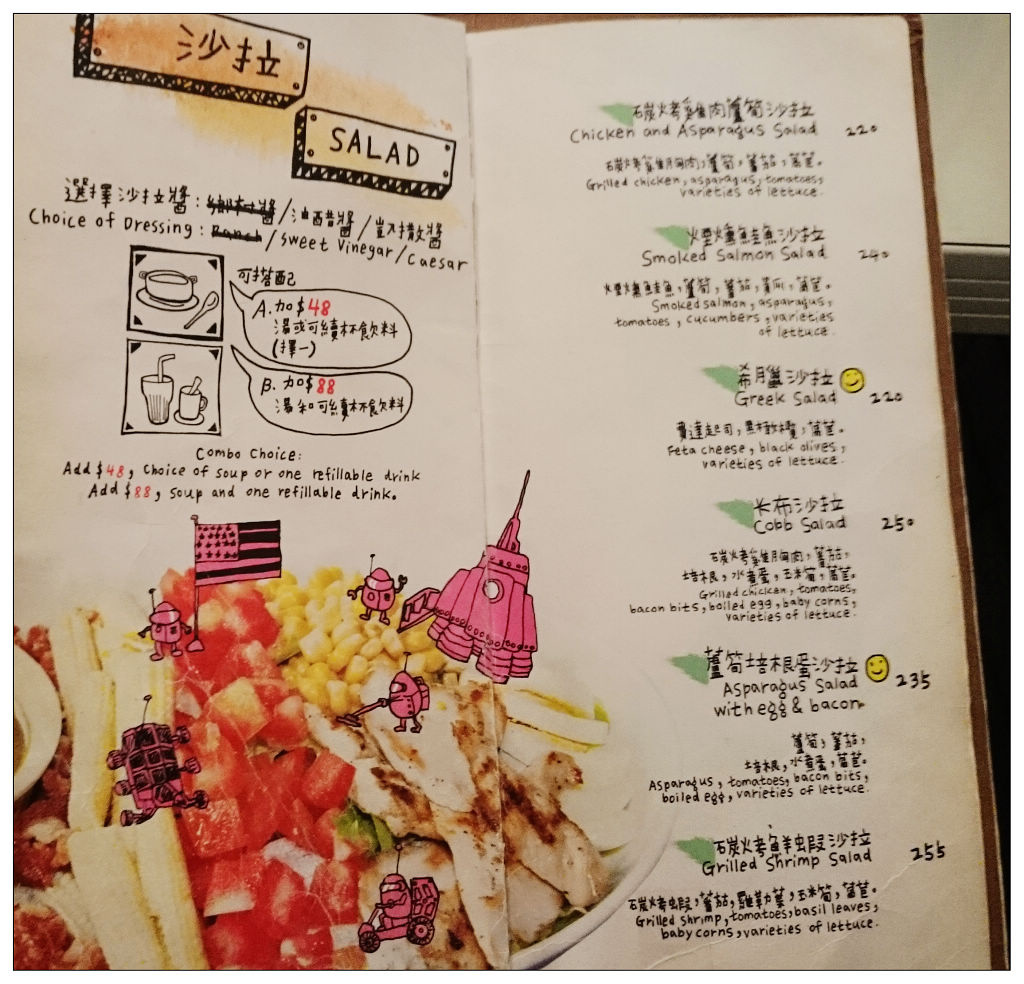 沙拉
SALAD
選擇沙拉醬: /油醋醬/凱撒醬
Choice of Dressing: Ranch/Sweet Vinegar/Caesar
可搭配
A. 加$48
湯或可續杯飲料
(擇一)
B. 加$88
湯和可續杯飲料
Combo Choice:
Add $48, Choice of soup or one refillable drink
Add $88, soup and one refillable drink.
碳烤雞肉蘆筍沙拉
Chicken and Asparagus Salad 220
碳烤雞胸肉,蘆筍,蕃茄,萵苣。
Grilled chicken, asparagus, tomatoes,
varieties of lettuce.
煙燻鮭魚沙拉
Smoked Salmon Salad 240
煙燻鮭魚,蘆筍,蕃茄,黃瓜,萵苣。
Smoked salmon, asparagus,
tomatoes, cucumbers, varieties
of lettuce.
希臘沙拉
Greek Salad 220
費達起司,黑橄欖,萵苣。
Feta cheese, black olives,
varieties of lettuce.
卡布沙拉
Cobb Salad 250
碳烤雞胸肉,蕃茄,
培根,水煮蛋,玉米筍,萵苣。
Grilled chicken, tomatoes,
bacon bits, boiled egg, baby corns,
varieties of lettuce.
蘆筍培根蛋沙拉
Asparagus Salad 235
with egg & bacon
蘆筍,蕃茄,
培根,水煮蛋,萵苣。
Asparagus, tomatoes, bacon bits,
boiled egg, varieties of lettuce.
碳烤鮮蝦沙拉
Grilled Shrimp Salad 255
碳烤蝦,蕃茄,羅勒葉,玉米筍,萵苣。
Grilled shrimp, tomatoes, basil leaves,
baby corns, varieties of lettuce.